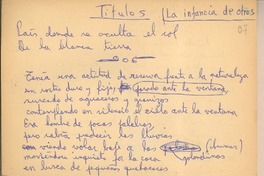 Títulos (La infancia de otros
País donde se oculta el sol
De la blanca tierra
Tenía una actitud de reserva frente a la naturaleza
un rostro duro y fijo, quedo ante la ventana,
surcado de aguaceros y granizos
contemplando en silencio el cielo ante la ventana
Era hombre de pocas palabras,
pero sabía padecer las lluvias
viendo volar bajo a las (dunas)
moviéndose inquieto por la casa golondrinas
en busca de pequeños quehaceres